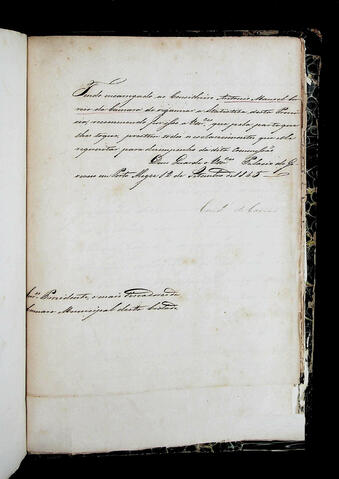 Tendo encarregado ao Conselheiro Antonio Manoel Cor-
rea da Camara de organisar a Statistica desta Provin-
cia, recommendo
que pela parte que
lhes toque, prestem todos os esclarecimentos que elle
requisitar para desempenho da dita Commissão.
Deos Guarde a Vmces. Palacio do Go-
verno em Porto Alegre 12 de Setembro de 1845
Conde de Caxias
Presidente, e mais Vereadores da
Camara Municipal desta Cidade